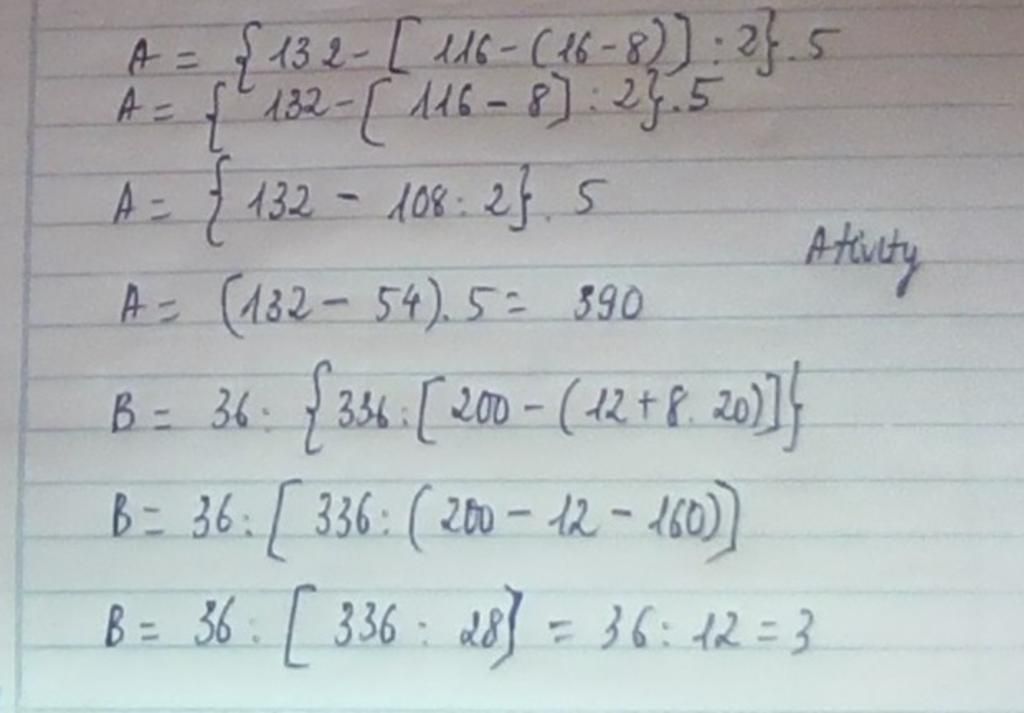 A = {132 - [116 - (16 - 8)] : 2}. 5
A = { 132 - [116 - 8] : 2}. 5
A = {132 - 108 : 2}. 5
Ativity
A = (132 - 54). 5 = 390
B = 36 : {336 : [200 - (12 + 8. 20)]}
B = 36 : [336 : (200 - 12 - 160)]
B = 36 : [336 : 28] = 36 : 12 = 3